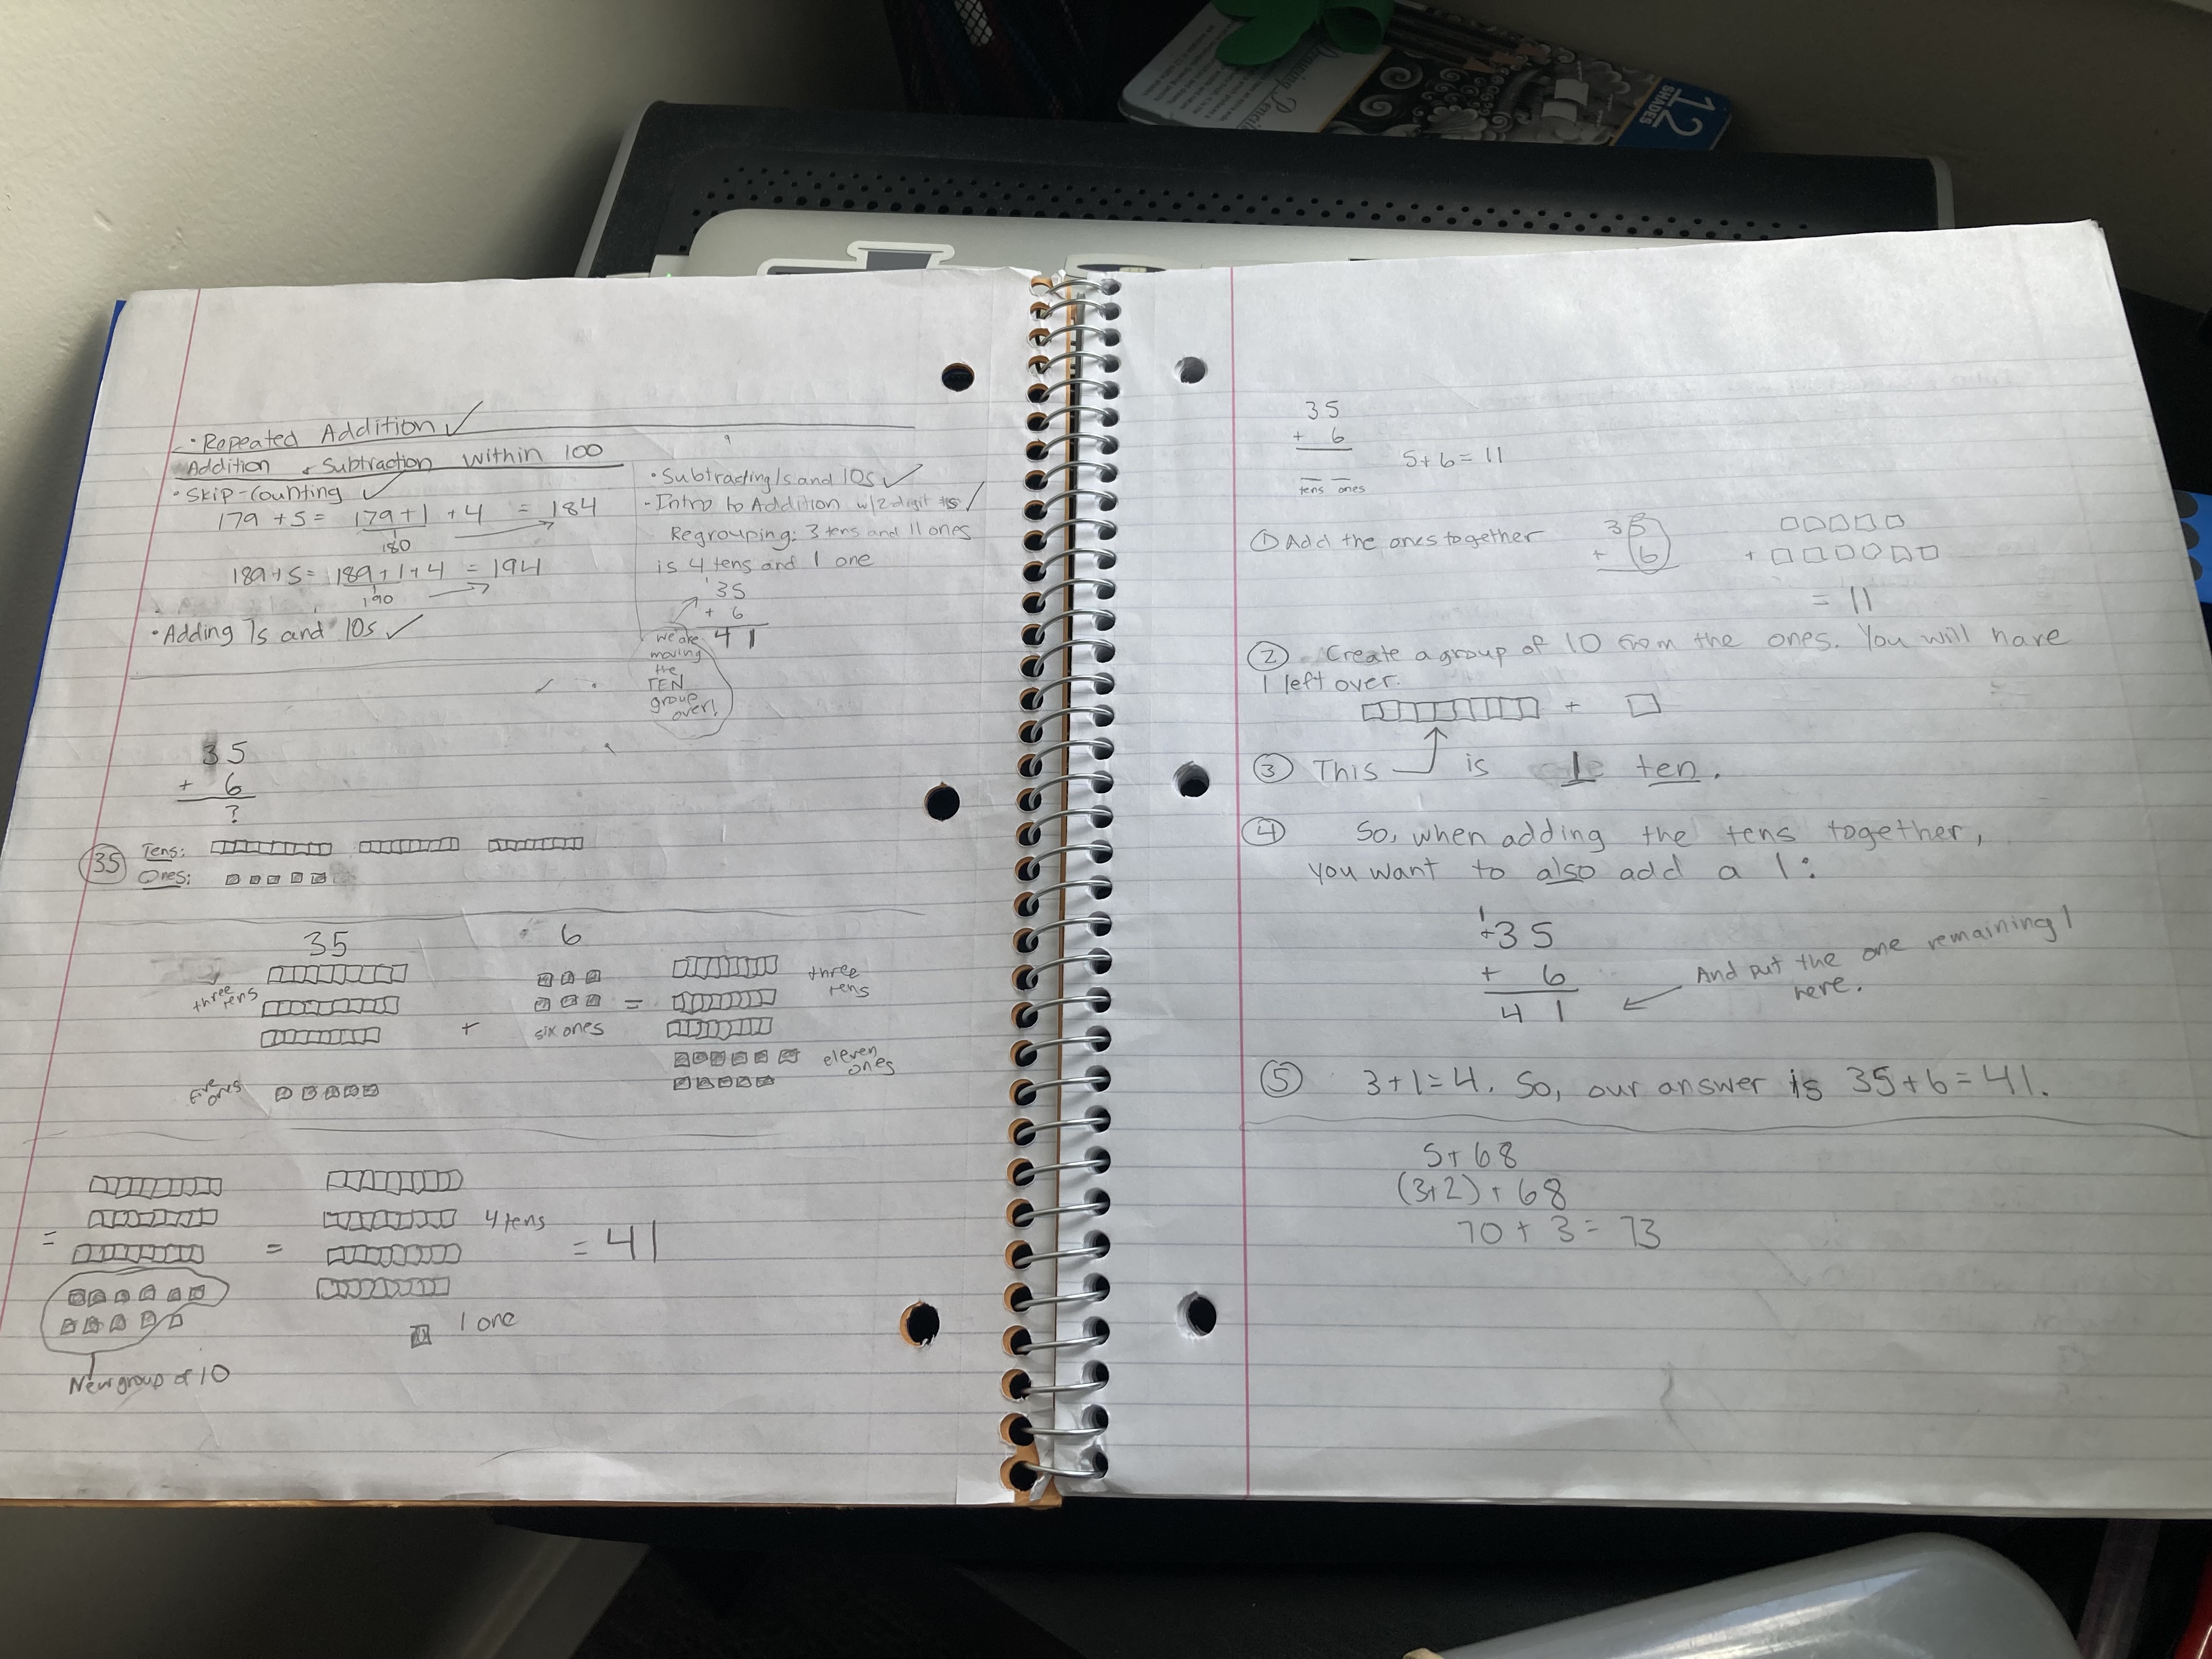 Drawing Pencils
12
SHADES
· Repeated Addition ✓
Addition + Subtraction within 100
· Skip-Counting ✓
179 + 5 = 179 + 1 + 4 = 184
180
189 + 5 = 189 + 1 + 4 = 194
190
· Adding 1s and 10s ✓
· Subtracting 1s and 10s ✓
- Intro to Addition w/2 digit #s ✓
Regrouping: 3 tens and 11 ones
is 4 tens and 1 one
1
35
+ 6
41
we are
moving
the
TEN
group
over!
35
+ 6
?
35
Tens:
Ones:
35
6
three tens
+
six ones
=
three tens
five ones
eleven ones
=
=
4 tens
= 41
1 one
New group of 10
35
+ 6
5 + 6 = 11
tens ones
① Add the ones together
35
+ 6
+
= 11
② Create a group of 10 from the ones. You will have
1 left over.
+
③ This is 1 ten.
④ So, when adding the tens together,
you want to also add a 1:
1
+35
+ 6
41
And put the one remaining 1
here.
⑤ 3+1=4. So, our answer is 35+6=41.
5+68
(3+2)+68
70+3=73